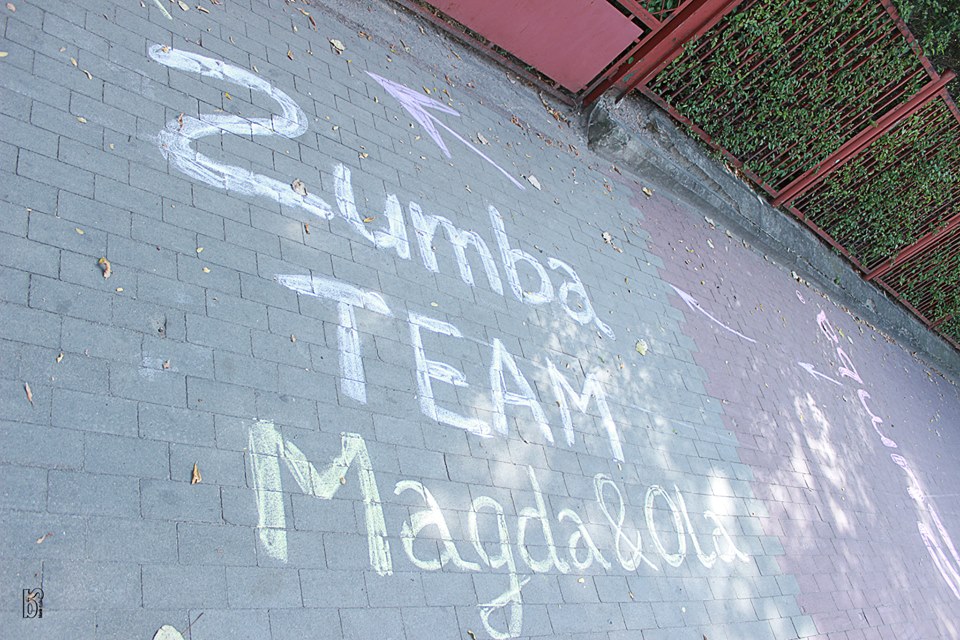 Zumba
TEAM
Magda & Ola